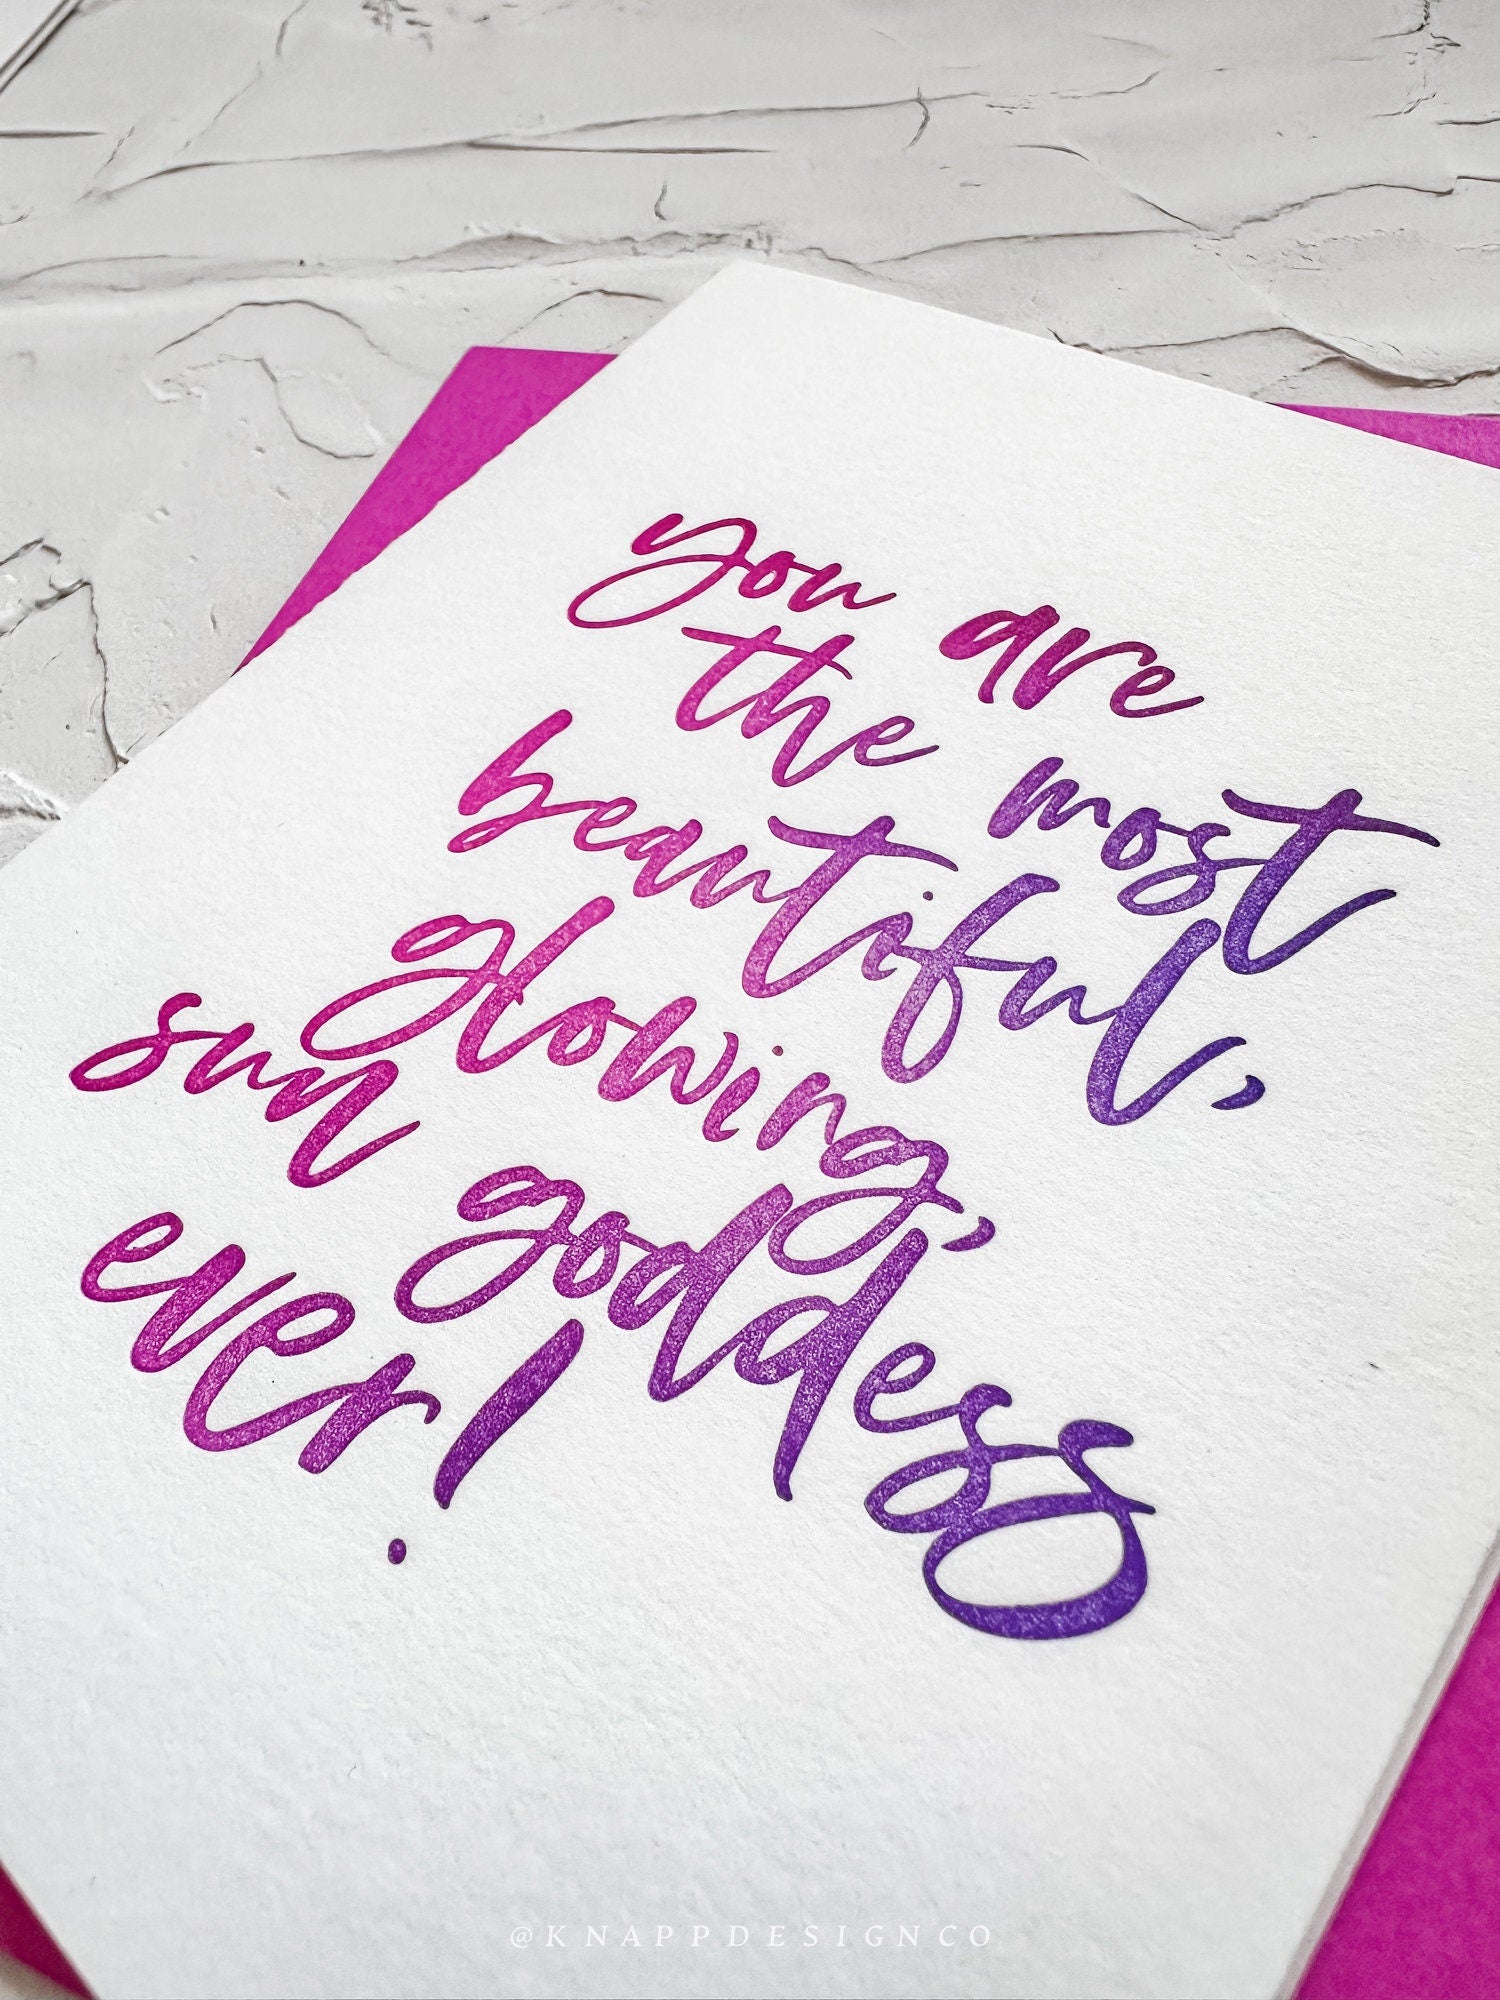 you are
the most
beautiful,
glowing,
sun goddess
ever!
@KNAPPDESIGNCO